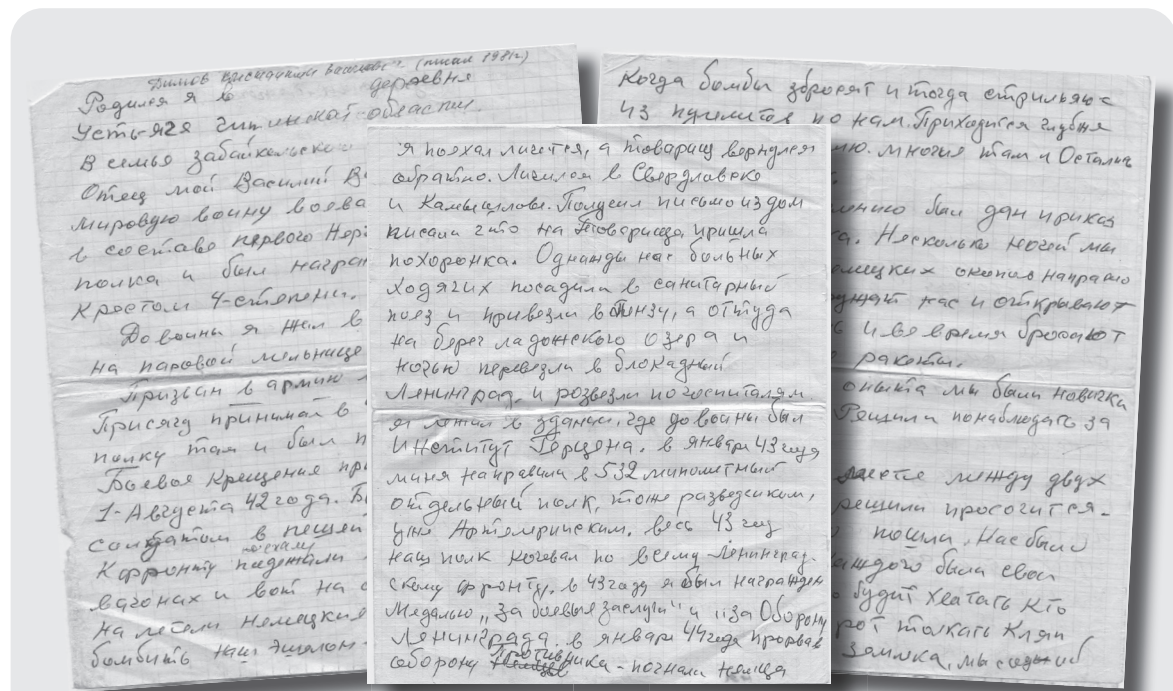 Димов Василиевич. (писал 1981г)
Родился я в деревня
Усть-Ягя Читинской области.
В семья забайкальского
Отец мой Василий В
мировую воину воева
в составе первого Нер
полка и был награ
Крестом 4-степени.
До воины я жил в
на паровой мельнице
Призван в армию
Присягу принимал в
полку там и был п
Боевое Крещения пр
1-Августа 42 года. Б
солдатом в пешей
К фронту подежали
поехали
вагонах и вот на
на летели немецкия
бомбить наш эшалон-
я поехал личется, а товарищ вернулся
обратно. Личился в Свердловске
и Камышлове. Получил письмо из дом
писали что на Товарища пришла
похоронка. Однажды нас больных
ходячих посадила в санитарный
поез и привезли в Пинзу, а оттуда
на берег ладожского озера и
ночью перевезла в блокадный
Ленинград. и розвезли по госпиталям
я лежал в здании, где до воины был
Институт Герцена. в январи 43 года
миня направила в 532 минометный
отдельный полк, тоже разведчиком,
уже Артелрийским. весь 43 год
наш полк кочевал по всему Ленинград-
скому фронту. в 43 году я был награжден
Медалью „За боевые заслуги" и „за Оборону
Ленинграда. в январи 44 года прорвав
оборону Противника - погнали немца
Когда бомбы збросят и тогда стрильяю-
из пулимётов по нам. Приходится глубже
ю. многия там и Остались
лению был дан приказ
а. Несколько ночей мы
емецких окопов направо
ужат нас и открывают
и все время бросают
ракеты.
опыта мы были новички
Решили понаблюдать за
между двух
решили просочится.
пошла. Нас было
аждого была своя
будит хватать Кто
рот толкать Кляп
Замика, мы